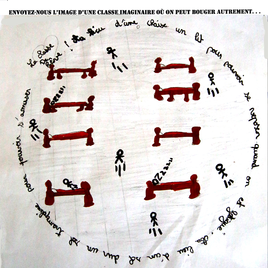 ENVOYEZ-NOUS L'IMAGE D'UNE CLASSE IMAGINAIRE OÙ ON PEUT BOUGER AUTREMENT...
Au lieu d'une chaise un lit pour pouvoir se reposer quand on est fatigué, au lieu d'un sol dur un sol trampoline pour pouvoir s'amuser